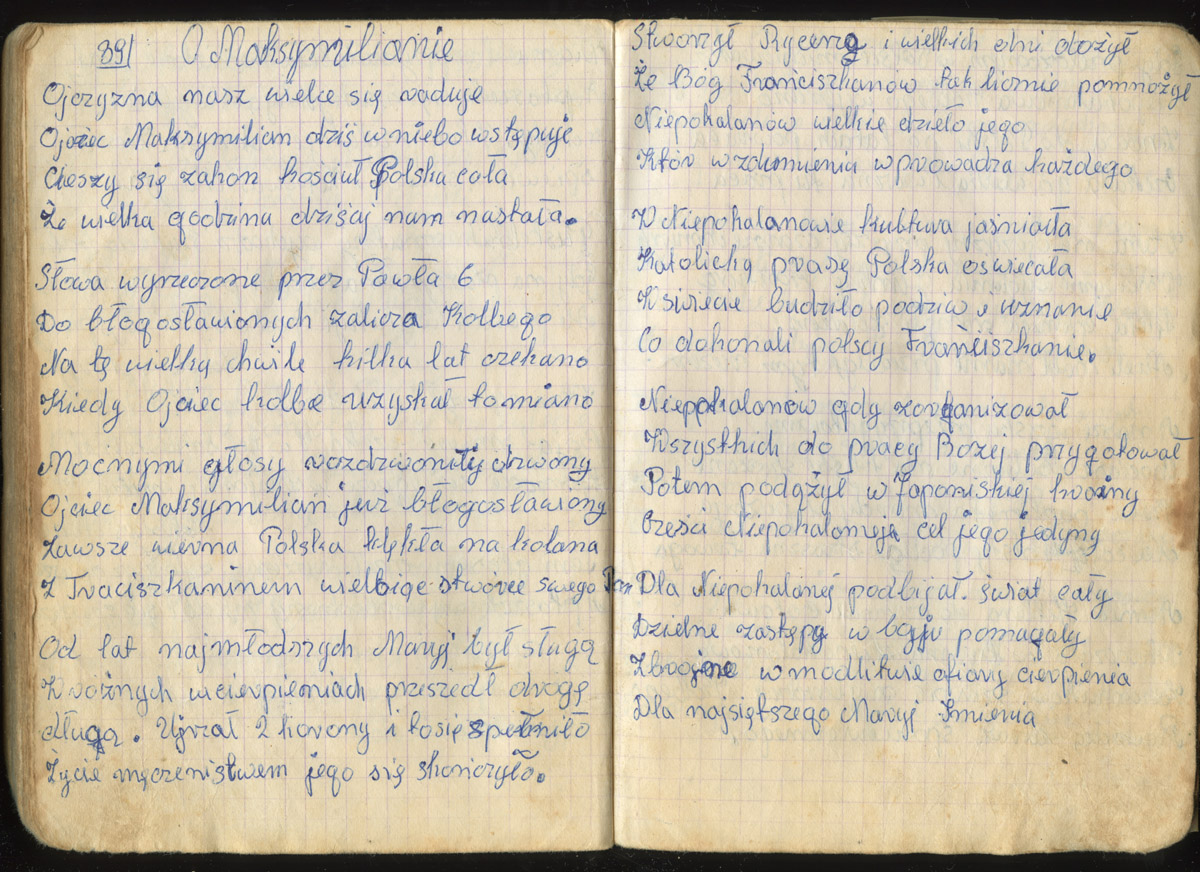 39) O Maksymilianie
Ojczyzna nasz wielce się raduje
Ojciec Maksymilian dziś w niebo wstępuje
Cieszy się zakon kościuł Polska cała
Że wielka godzina dzisiaj nam nastała.
Słowa wyrzeczone przez Pawła 6
Do błogosławionych zalicza Kolbego
Na tę wielką chwile kilka lat czekano
Kiedy Ojciec kolbe uzyskał to miano
Mocnymi głosy rozdzwoniły dzwony
Ojciec Maksymilian już błogosławiony
Zawsze wierna Polska klękła na kolana
Z Fraciszkaninem wielbige stwórce swego Pan
Od lat najmłodszych Maryj był sługą
W rożnych w cierpieniach przeszedl drogę
długą. Ujrzał 2 korony i to się spełniło
Życie męczenistwem jego się skończyło.
Stworzył Rycerzą i wielkich dni dożył
Że Bóg Franciszkanów tak licznie pomnożył
Niepokalanów wielkie dzieło jego
Któr w zdumienia wprowadza każdego
W Niepokalanowie kultura jaśniałła
Katolicką prasę Polska oswiecała
W świecie budziło podziw i uznanie
Co dokonali polscy Franciszkanie.
Niepokalanów gdy zorganizował
Wszystkich do pracy Bożej przygotował
Potem podążył w Japoniskiej krainy
Cześci Niepokalanej cel jego jedyny
Dla Niepokalanej podbijał. świat cały
Dzielne zastępy w boju pomagały
Zbrojne w modlitwie ofiary cierpienia
Dla najsiętszego Maryj Imienia